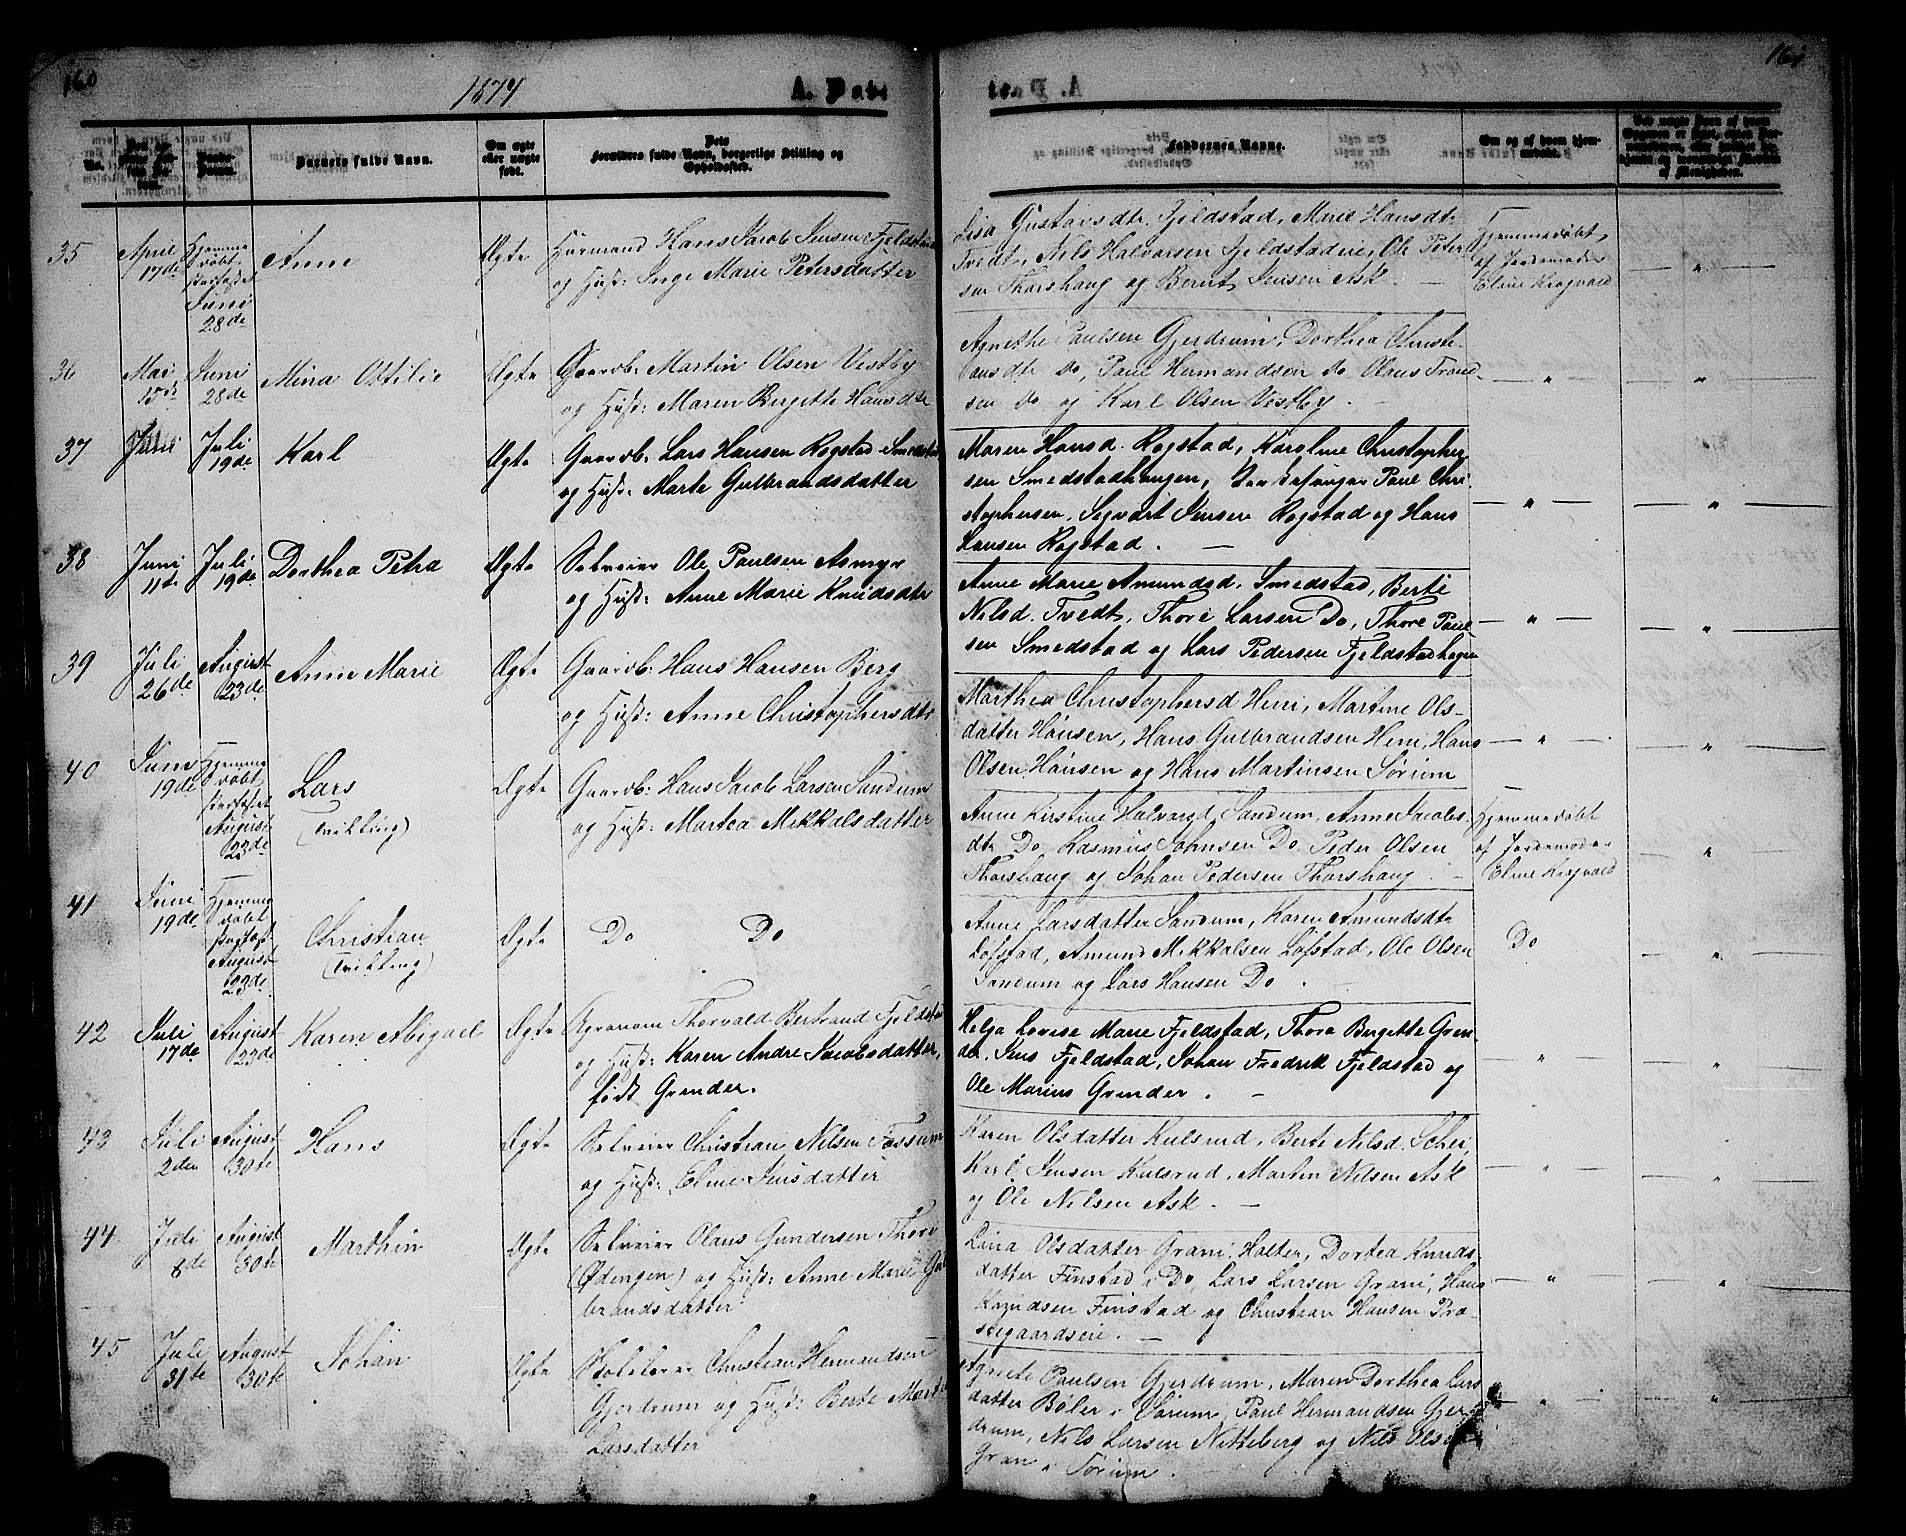 160
1874
A.
161
Barnets fulde Navn.
Om ægte eller uægte født.
Forældres fulde Navn, borgerlige Stilling og Opholdssted.
Faddernes Navne.
35
April 17de
Hjemme døbt stadfæstet Juni 28de
Anne
Ægte
Husmand Hans Jacob Jensen
og Hust: Inge Marie Petersdatter
Lisa Gustavsdtr Fjeldstad, Marie Hansdtr
Tvedt, Nils Halvorsen Fjeldstadeie, Ole Peter
sen Thorshaug og Bernt Jensen Ask. —
Hjemmedøbt,
af Jordemoder
Eline Krogvold
— " —
36
Mai 15de
Juni 28de
Mina Ottilie
Ægte
Gaardb: Martin Olsen Vestby
og Hust: Maren Birgitte Hansdtr
Agnethe Paulsen Gjerdrum, Dorthea Christi
ansdtr Do, Paul Hermandsen Do Olaus
sen Do og Karl Olsen Vestby. —
— " —
— " —
37
Juli 19de
Karl
Ægte
Gaardb: Lars Hansen Rogstad
og Hust: Marte Gulbrandsdatter
Maren Hansd. Rogstad, Karoline Christopher
sen Smedstadhaugen, Paul Chri-
stophersen, Segvart Jensen Rogstad og Hans
Hansen Rogstad. —
— " —
— " —
38
Juni 11te
Juli 19de
Dorthea Petra
Ægte
Selveier Ole Paulsen Asmyr
og Hust: Anne Marie Knudsdtr
Anne Marie Amundsd. Smedstad, Berte
Nilsd. Tvedt, Thore Larsen Do, Thore Paul-
sen Smedstad og Lars Pedersen Fjeldstadhagen
— " —
— " —
39
Juli 26de
August 23de
Anne Marie
Ægte
Gaardb: Hans Hansen Berg
og Hust: Anne Christophersdtr
Marthea Christophersd Heni, Martine Ols-
datter Hansen, Hans Gulbrandsen Heni, Hans
Olsen Hansen og Hans Martinsen Sørum
— " —
— " —
40
Juni 19de
Hjemme døbt stadfæstet August 23de
Lars
(Tvilling)
Ægte
Gaardb: Hans Jacob Larsen Sandum
og Hust: Martea Mikkalsdatter
Anne Kirstine Halvorsd Sandum, Anne Jacobs
dtr Do, Rasmus Johnsen Do, Peder Olsen
Thorshaug og Johan Pedersen Thorshaug. —
Hjemmedøbt
af Jordemoder
Eline Krogvold
— " —
41
Juni 19de
Hjemme døbt stadfæst August 23de
Christian
(Tvilling)
Ægte
Do Do
Anne Larsdatter Sandum, Karen Amundsdtr
Løfstad, Amund Mikkalsen Løfstad, Ole Olsen
Sandum og Lars Hansen Do .
Do
— " —
42
Juli 17de
August 23de
Karen Abigael
Ægte
Agronom Thorvald Bertrand Fjeldstad
og Hust: Karen Andre Jacobsdatter,
født Grønder.
Helga Lovise Marie Fjeldstad, Thora Birgitte Grøn-
der, Jens Fjeldstad, Johan Fredrik Fjeldstad og
Ole Marius Grønder. —
— " —
— " —
43
Juli 2den
August 30te
Hans
Ægte
Selveier Christian Nilsen Fossum
og Hust: Eline Jensdatter
Karen Olsdatter Kulsrud, Berte Nilsd. Scher,
Karl Jensen Kulsrud, Martin Nilsen Ask
og Ole Nilsen Ask. —
— " —
— " —
44
Juli 8de
August 30te
Marthin
Ægte
Selveier Olaus Gundersen
(Ødengen) og Hust: Anne Marie Gul
brandsdatter
Lina Olsdatter Grani Holter, Dortea Knuds-
datter Finstad i Do, Lars Larsen Grani, Hans
Knudsen Finstad og Christian Hansen Præ-
stegaardseie. —
— " —
— " —
45
Juli 31te
August 30te
Johan
Ægte
Christian Hermandsen
Gjerdrum og Hust: Berte Marte
Larsdatter
Agnete Paulsen Gjerdrum, Maren Dorthea Lars
datter Bøler i Sørum, Paul Hermandsen Gjer
drum, Nils Larsen Nitteberg og Nils Olsen
Gran i Sørum. —
— " —
— " —